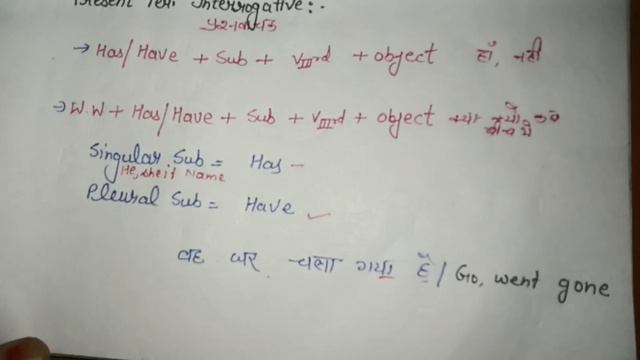 Present Per. Interrogative:-
प्रश्नवाचक
→ Has/Have + Sub + VIIIrd + object हाँ, नही
→ W.W + Has/Have + Sub + VIIIrd + object क्या क्यों
Singular Sub = Has -
He, she it Name
Pleural Sub = Have ✓
वह घर चला गया है / Go, went gone